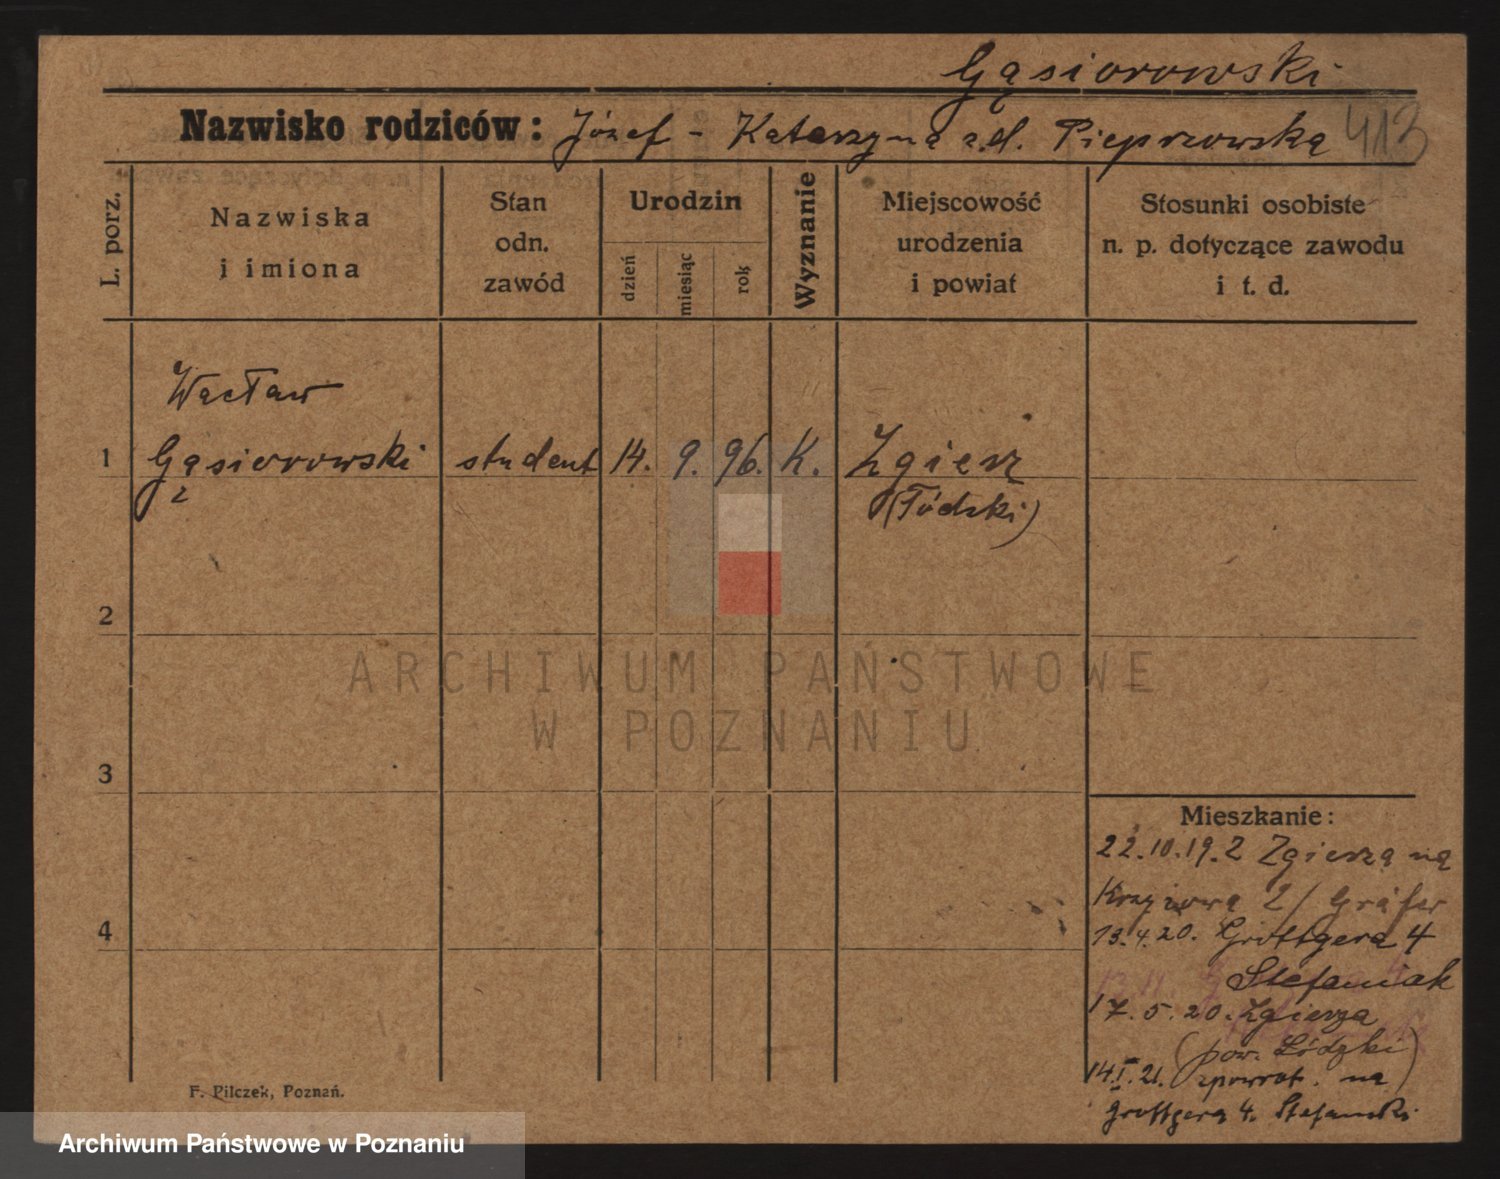 Gąsiorowski
413
Nazwisko rodziców: Józef - Katarzyna z.d. Pieprzowska
L. porz.
Nazwiska
i imiona
Stan
odn.
zawód
Urodzin
dzień
miesiąc
rok
Wyznanie
Miejscowość
urodzenia
i powiat
Stosunki osobiste
n. p. dotyczące zawodu
i t. d.
Wacław
1 Gąsiorowski student 14. 9. 96. K. Zgierz
(Łódzki)
2
ARCHIWUM PAŃSTWOWE
W POZNANIU
3
4
Mieszkanie:
22.10.19. Z Zgierza na
2/ Gräfer
13.4.20. Grottgera 4
Stefaniak
17.5.20. Zgierza
(pow. Łódzki)
14.I.21. zpowrot. na
Grottgera 4. Stefański
F. Pilczek, Poznań.
Archiwum Państwowe w Poznaniu